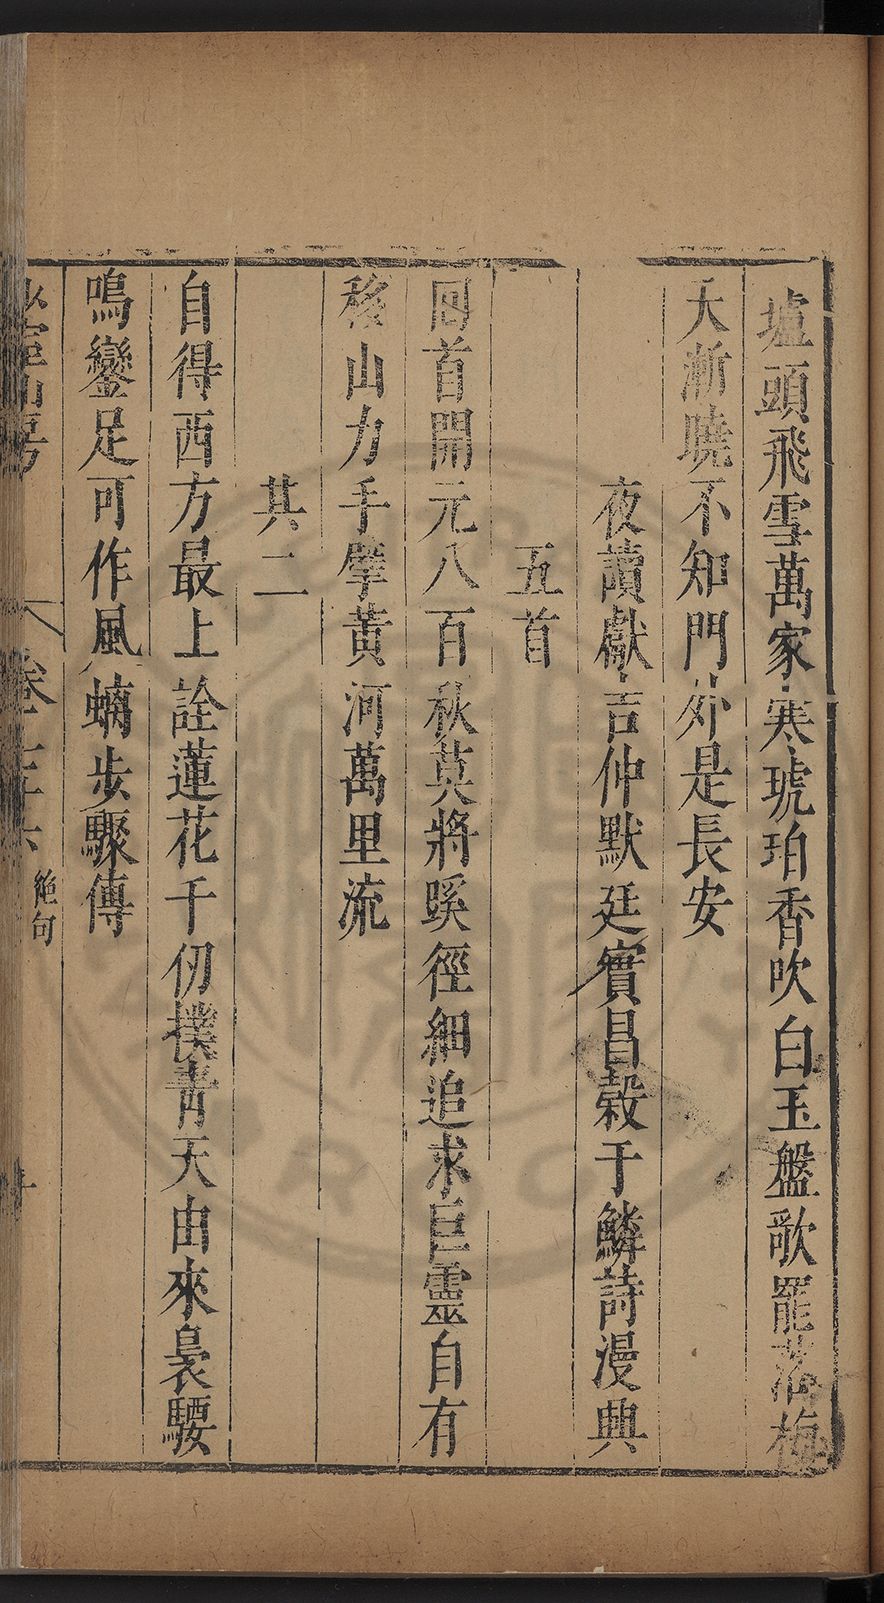 壚頭飛雪萬家寒琥珀香吹白玉盤歌罷落梅
天漸曉不知門外是長安
夜讀獻吉仲默廷實昌穀于鱗詩漫興
五首
回首開元八百秋莫將蹊徑細追求巨靈自有
移山力手擘黃河萬里流
其二
自得西方最上詮蓮花千仞撲青天由來裊騕
鳴鑾足可作風蝻步驟傳
卷
絶句